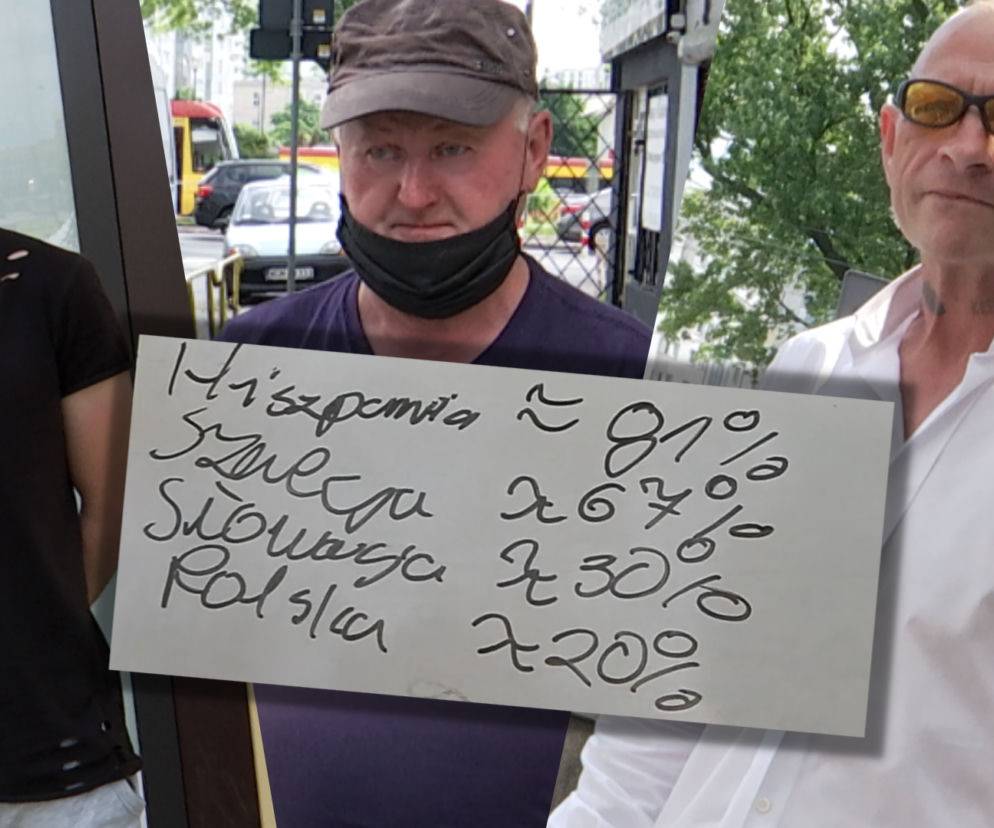 Hiszpania ≈ 81%
Szwecja ≈ 67%
Słowacja ≈ 30%
Polska ≈ 20%